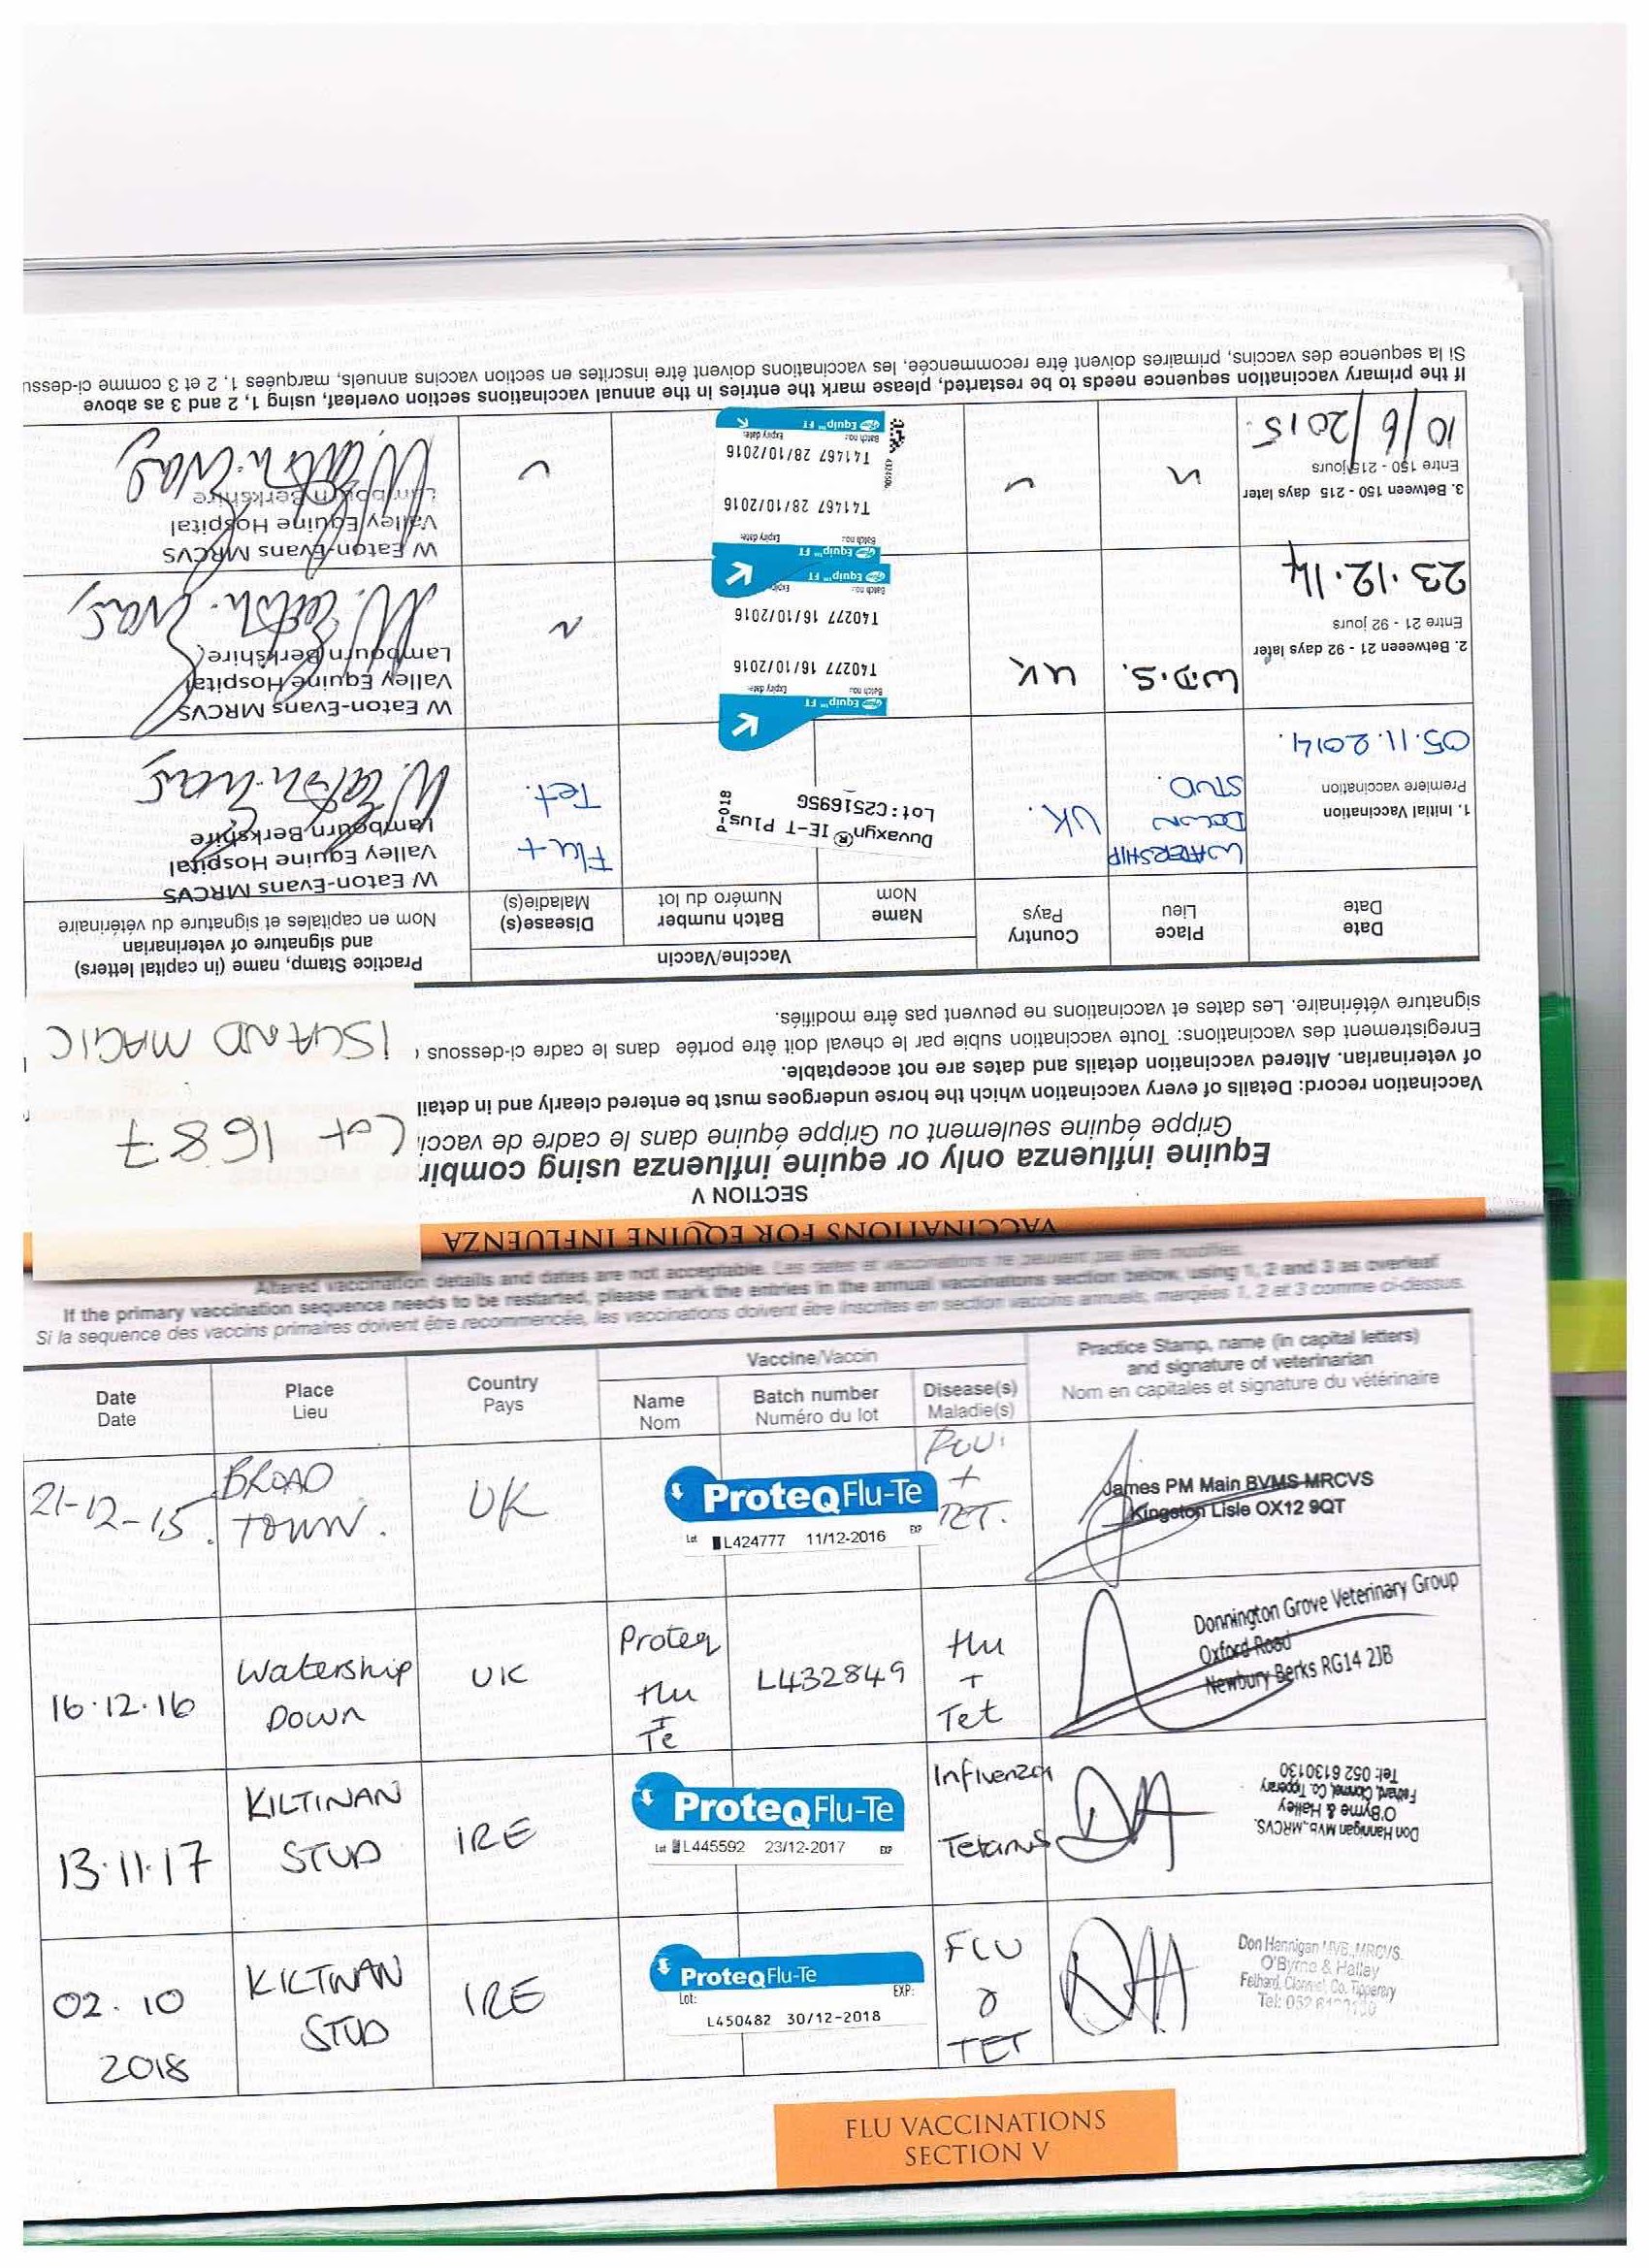 VACCINATIONS FOR EQUINE INFLUENZA
SECTION V
Equine influenza only or equine influenza using combin
Grippe équine seulement ou Grippe équine dans le cadre de vacci
Lot 1687
ISLAND MAGIC
Vaccination record: Details of every vaccination which the horse undergoes must be entered clearly and in detail
of veterinarian. Altered vaccination details and dates are not acceptable.
Enregistrement des vaccinations: Toute vaccination subie par le cheval doit être portée dans le cadre ci-dessous
signature vétérinaire. Les dates et vaccinations ne peuvent pas être modifiés.
Date
Date
Place
Lieu
Country
Pays
Vaccine/Vaccin
Name
Nom
Batch number
Numéro du lot
Disease(s)
Maladie(s)
Practice Stamp, name (in capital letters)
and signature of veterinarian
Nom en capitales et signature du vétérinaire
1. Initial Vaccination
Premiere vaccination
05.11.2014.
WATERSHIP
DOWN
STUD.
UK.
Duvaxyn® IE-T Plus
Lot: C251695G
P-018
Flu +
Tet.
W Eaton-Evans MRCVS
Valley Equine Hospital
Lambourn Berkshire
W. Eaton-Evans
2. Betweeen 21 - 92 days later
Entre 21 - 92 jours
23.12.14
W.D.S.
UK
Equip™ FT
Batch no.: Expiry date:
T40277 16/10/2016
T40277 16/10/2016
Batch no.: Expiry
Equip™ FT
"
W Eaton-Evans MRCVS
Valley Equine Hospital
Lambourn Berkshire
W. Eaton-Evans
3. Between 150 - 215 days later
Entre 150 - 215 jours
10/6/2015.
"
"
Equip™ FT
Batch no.: Expiry date:
T41467 28/10/2016
T41467 28/10/2016
Batch no.: Expiry date:
Equip™ FT
"
W Eaton-Evans MRCVS
Valley Equine Hospital
Lambourn Berkshire
W. Eaton-Evans
If the primary vaccination sequence needs to be restarted, please mark the entries in the annual vaccinations section overleaf, using 1, 2 and 3 as above
Si la sequence des vaccins, primaires doivent être recommencée, les vaccinations doivent être inscrites en section vaccins annuels, marquées 1, 2 et 3 comme ci-dessu
Altered vaccination details and dates are not acceptable. Les dates et vaccinations ne peuvent pas être modifiés.
If the primary vaccination sequence needs to be restarted, please mark the entries in the annual vaccinations section below, using 1, 2 and 3 as overleaf
Si la sequence des vaccins primaires doivent être recommencée, les vaccinations doivent être inscrites en section vaccins annuels, marquées 1, 2 et 3 comme ci-dessus.
Date
Date
Place
Lieu
Country
Pays
Vaccine/Vaccin
Name
Nom
Batch number
Numéro du lot
Disease(s)
Maladie(s)
Practice Stamp, name (in capital letters)
and signature of veterinarian
Nom en capitales et signature du vétérinaire
21-12-15.
BROAD
TOWN.
UK
ProteqFlu-Te
Lot L424777 11/12-2016 EXP
FLU.
+
TET.
James PM Main BVMS MRCVS
Kingston Lisle OX12 9QT
16.12.16
Watership
Down
UK
Proteq
flu
Te
L432849
flu
+
Tet
Donnington Grove Veterinary Group
Oxford Road
Newbury Berks RG14 2JB
13.11.17
KILTINAN
STUD
IRE
ProteqFlu-Te
Lot L445592 23/12-2017 EXP
Influenza
Tetanus
Don Hannigan MVB., MRCVS.
O'Byrne & Halley
Fethard, Clonmel, Co. Tipperary
Tel: 052 6130130
02.10
2018
KILTINAN
STUD
IRE
ProteqFlu-Te
Lot: EXP:
L450482 30/12-2018
FLU
&
TET
Don Hannigan MVB., MRCVS.
O'Byrne & Halley
Fethard, Clonmel, Co. Tipperary
Tel: 052
FLU VACCINATIONS
SECTION V